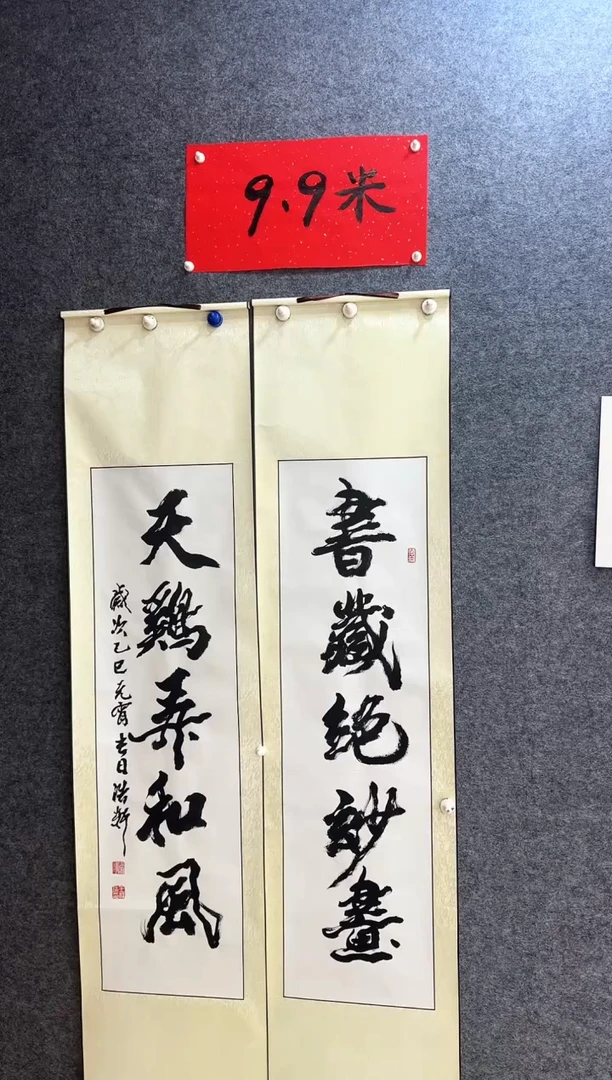 9.9米
書藏絶妙畫
天鷄弄和風
歲次乙巳元宵吉日浩